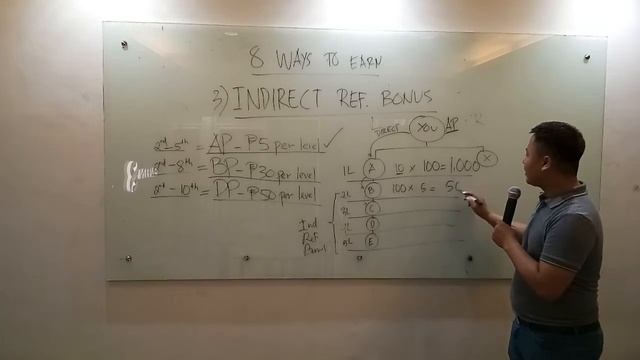 8 WAYS TO EARN
3) INDIRECT REF. BONUS
2nd-5th = AP - ₱5 per level ✓
2nd-8th = BP - ₱30 per level
2nd-10th = DP - ₱50 per level
DIRECT YOU AP
1L A 10 × 100 = 1,000 X
2L B 100 × 5 = 50
3L C
4L D
5L E
Ind
Ref
Bonus